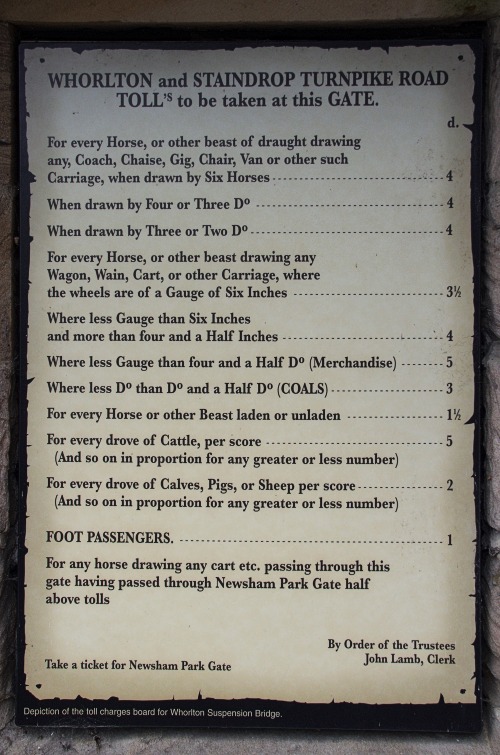 WHORLTON and STAINDROP TURNPIKE ROAD
TOLL'S to be taken at this GATE.
d.
For every Horse, or other beast of draught drawing
any, Coach, Chaise, Gig, Chair, Van or other such
Carriage, when drawn by Six Horses 4
When drawn by Four or Three Dº 4
When drawn by Three or Two Dº 4
For every Horse, or other beast drawing any
Wagon, Wain, Cart, or other Carriage, where
the wheels are of a Gauge of Six Inches 3½
Where less Gauge than Six Inches
and more than four and a Half Inches 4
Where less Gauge than four and a Half Dº (Merchandise) 5
Where less Dº than Dº and a Half Dº (COALS) 3
For every Horse or other Beast laden or unladen 1½
For every drove of Cattle, per score 5
(And so on in proportion for any greater or less number)
For every drove of Calves, Pigs, or Sheep per score 2
(And so on in proportion for any greater or less number)
FOOT PASSENGERS. 1
For any horse drawing any cart etc. passing through this
gate having passed through Newsham Park Gate half
above tolls
By Order of the Trustees
John Lamb, Clerk
Take a ticket for Newsham Park Gate
Depiction of the toll charges board for Whorlton Suspension Bridge.